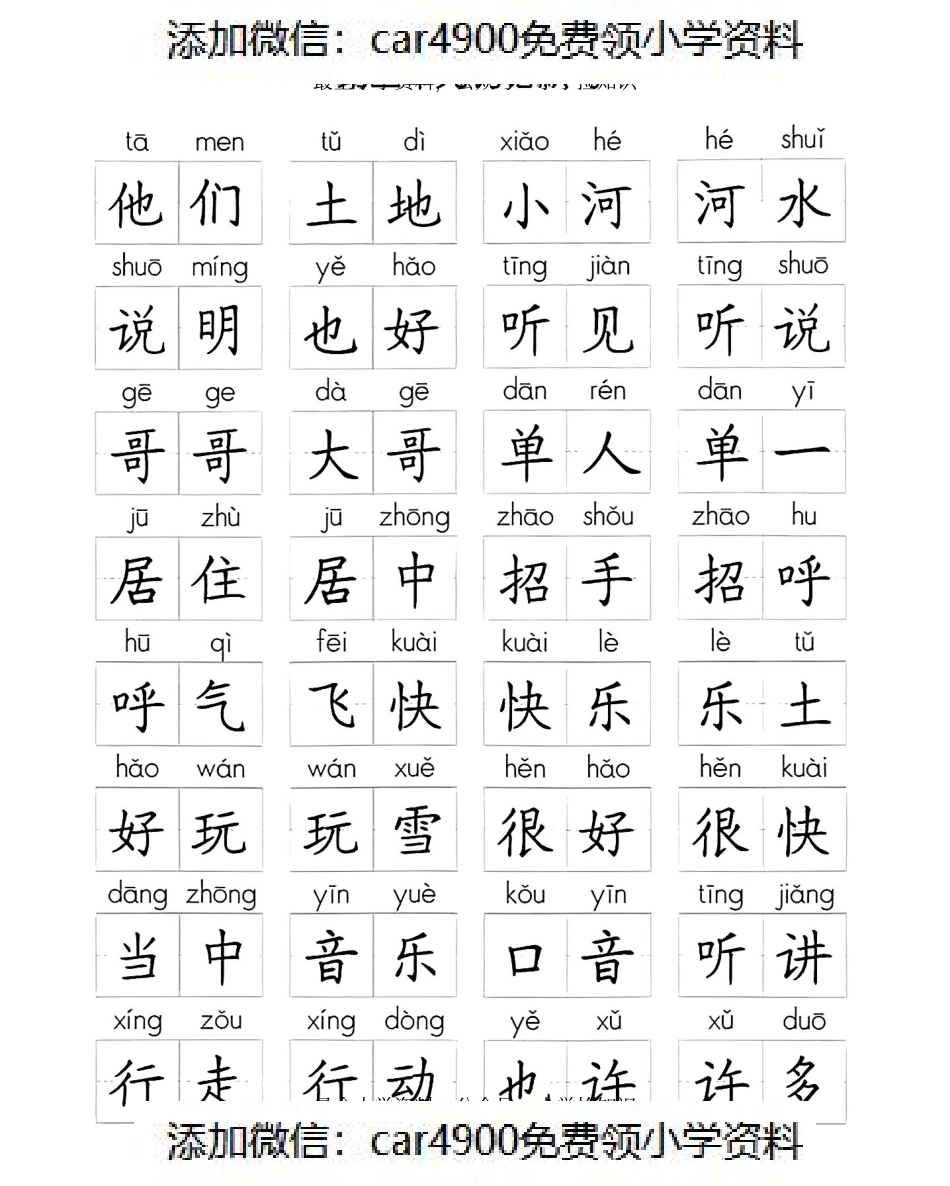 添加微信：car4900免费领小学资料
tā men tǔ dì xiǎo hé hé shuǐ
他们 土地 小河 河水
shuō míng yě hǎo tīng jiàn tīng shuō
说明 也好 听见 听说
gē ge dà gē dān rén dān yī
哥哥 大哥 单人 单一
jū zhù jū zhōng zhāo shǒu zhāo hu
居住 居中 招手 招呼
hū qì fēi kuài kuài lè lè tǔ
呼气 飞快 快乐 乐土
hǎo wán wán xuě hěn hǎo hěn kuài
好玩 玩雪 很好 很快
dāng zhōng yīn yuè kǒu yīn tīng jiǎng
当中 音乐 口音 听讲
xíng zǒu xíng dòng yě xǔ xǔ duō
行走 行动 也许 许多
添加微信：car4900免费领小学资料